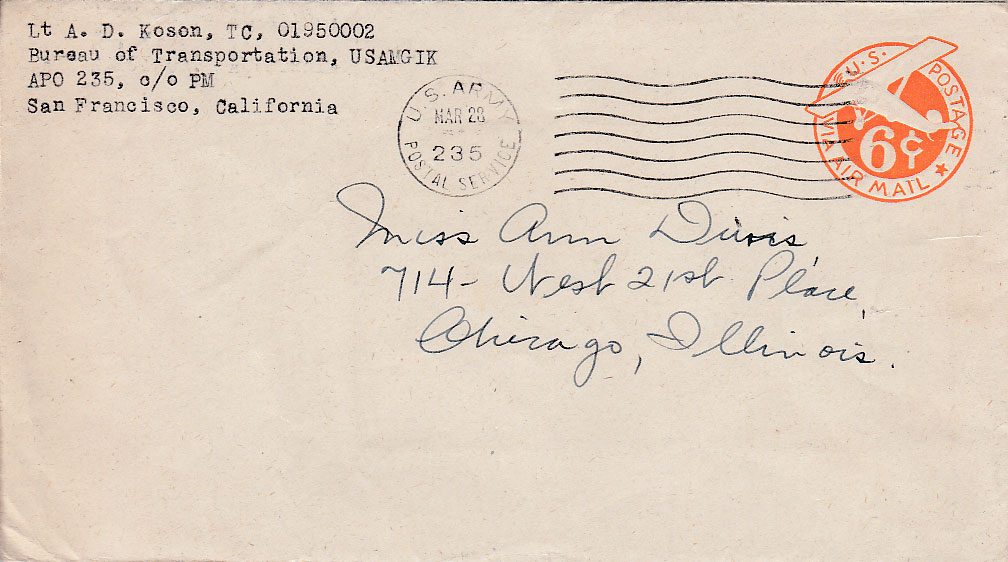 Lt A. D. Koson, TC, 01950002
Bureau of Transportation, USAMGIK
APO 235, c/o PM
San Francisco, California
U.S. ARMY
MAR 28
235
POSTAL SERVICE
U.S. POSTAGE
6¢
VIA AIR MAIL
Miss Ann
714- West 21st Place,
Chicago, Illinois.